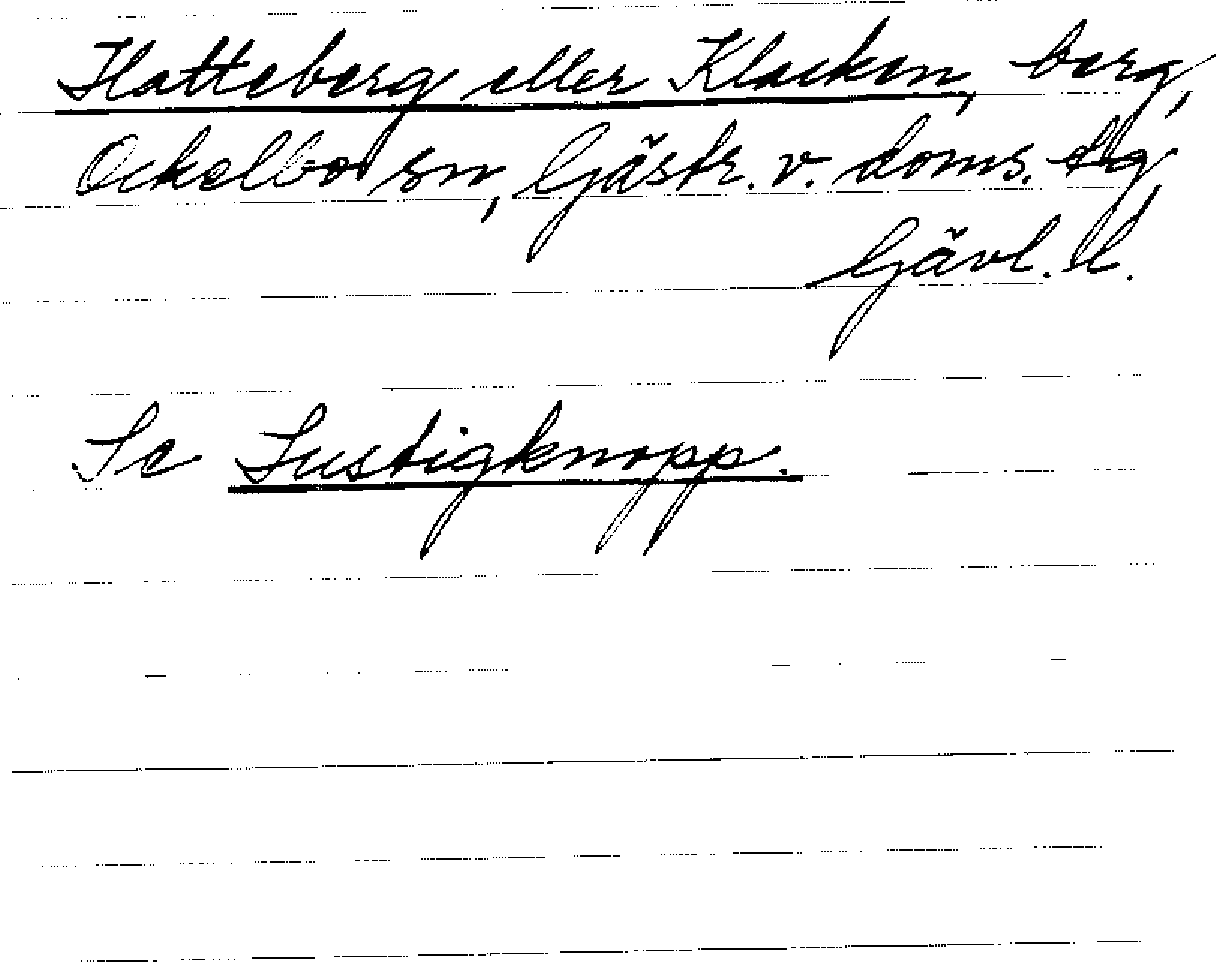 Hatteberg eller Klacken, berg,
Ockelbo sn, Gästr. v. doms. tlg
Gävl. l.
Se Lustigknopp.